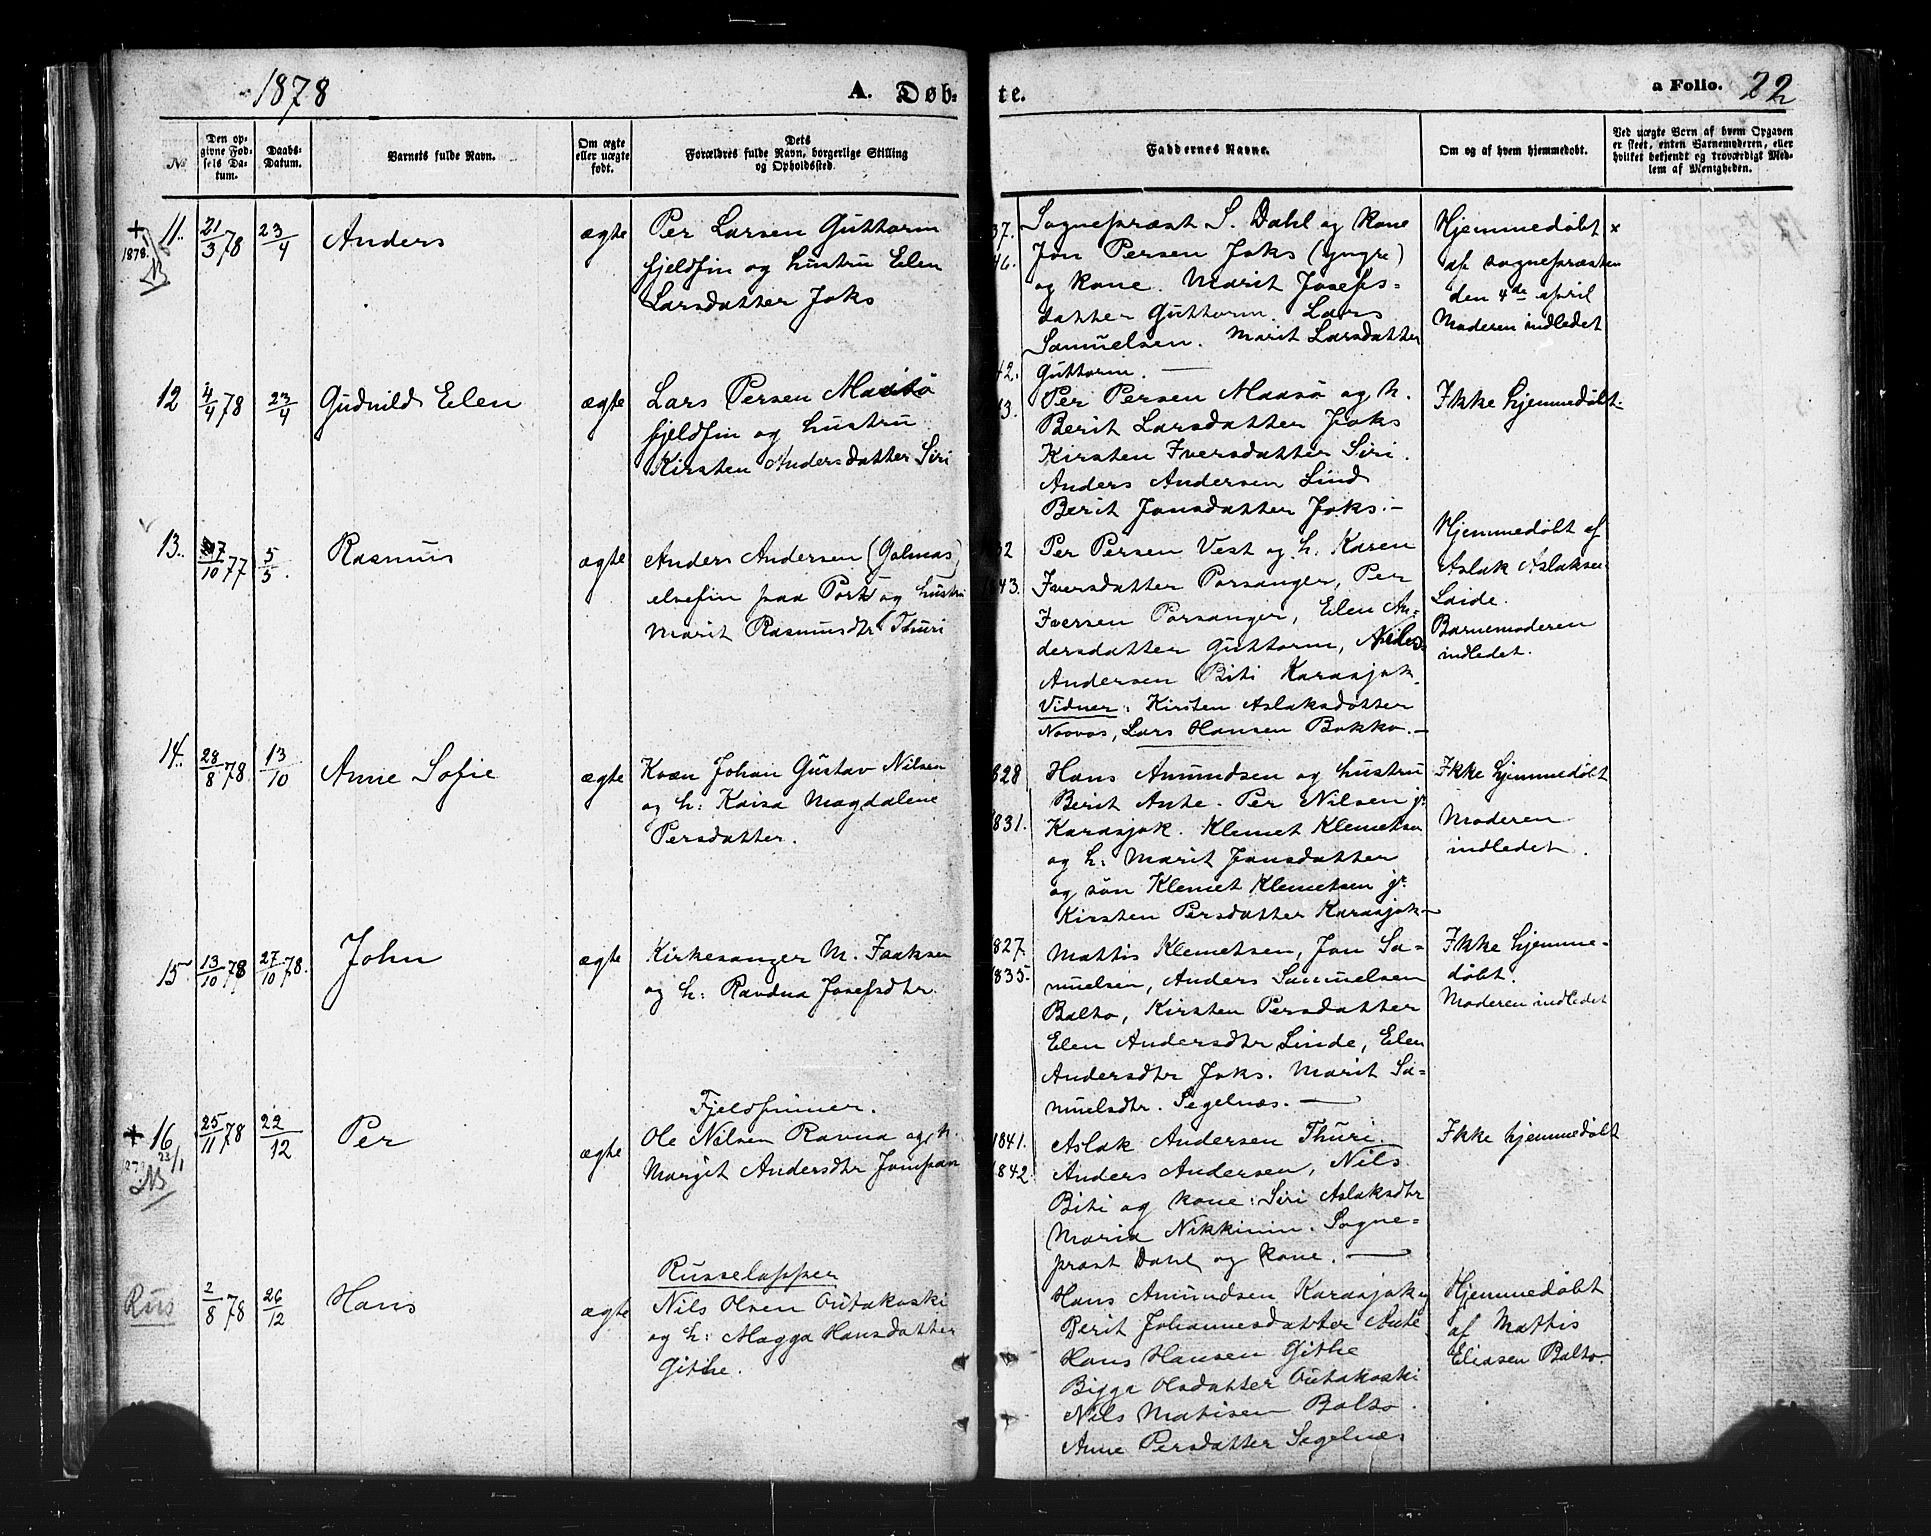 1878
A. Døb-
te.
a Folio. 22
No
Den op-
givne Fød-
sels Da-
tum.
Daabs-
Datum.
Barnets fulde Navn.
Om ægte
eller uægte
født.
Dets
Forældres fulde Navn, borgerlige Stilling
og Opholdssted.
Faddernes Navne.
Om og af hvem hjemmedøbt.
Ved uægte Børn af hvem Opgaven
er skeet, enten Barnemoderen, eller
hvilket bekjendt og troværdigt Med-
lem af Menigheden.
+
1878.
11.. 21/3 78 23/4 Anders ægte
Per Larsen Guttorm
fjeldfin og hustru Elen
Larsdatter Joks
37.
46.
Sognepræst S. Dahl og kone
Jon Persen Joks (yngre)
og kone. Marit Josefs-
datter Guttorm. Lars
Samuelsen. Marit Larsdatter
Guttorm.
Hjemmedøbt x
af sognepræsten
den 4de april
Moderen indledet
12 4/4 78 23/4 Gudnild Elen ægte
Lars Persen Maasø
fjeldfin og hustru
Kirsten Andersdatter Siri
42.
43.
Per Persen Maasø og h.
Berit Larsdatter Joks
Kirsten Iversdatter Siri.
Anders Andersen Lind
Berit Jonsdatter Joks.-
Ikke hjemmedøbt.
13.. 7/10 77 5/5. Rasmus ægte
Anders Andersen (Golmas)
elvefin paa Port og hustru
Marit Rasmusdtr Thuri
32
1843.
Per Persen Vest og h. Karen
Iversdatter Porsanger, Per
Iversen Porsanger, Elen An-
dersdatter Guttorm, Anders
Andersen Biti Karasjok.
Vidner: Kirsten Aslaksdatter
Noovas, Lars Hansen Bokko.-
Hjemmedøbt af
Aslak Aslaksen
Laide.
Barnemoderen
indledet.
14.. 28/8 78. 13/10 Anne Sofie ægte
Kvæn Johan Gustav Nilsen
og h: Kaisa Magdalene
Persdatter.
1828
1831.
Hans Amundsen og hustru
Berit Ante. Per Nilsen jr
Karasjok. Klemet Klemetsen
og h: Marit Jonsdatter
og søn Klemet Klemetsen jr.
Kirsten Persdatter Karasjok-
Ikke hjemmedøbt
Moderen
indledet.
15 13/10 78 27/10 78. John ægte
Kirkesanger M. Isaksen
og h: Ravdna Josefsdtr.
1827
1835.
Mattis Klemetsen, Jon Sa-
muelsen, Anders Samuelsen
Balto, Kirsten Persdatter
Elen Andersdtr Linde, Elen
Andersdtr Joks. Marit Sa-
muelsdtr. Segelnæs. -
Ikke hjemme-
døbt.
Moderen indledet
+ 16 25/11 78 22/12 Per ægte
23/1
Fjeldfinner.
Ole Nilsen Ravna og h.
Margit Andersdtr Jomppan
1841.
1842.
Aslak Andersen Thuri.
Anders Andersen, Nils
Biti og kone: Siri Aslaksdtr
Maria Nikkinin. Sogne-
præst Dahl og kone. -
Ikke hjemmedøbt
Rus 2/8 78 26/12 Hans ægte
Russelapper
Nils Olsen Outakoski
og h: Magga Hansdatter
Githe.
Hans Amundsen Karasjok og
Berit Johannesdatter Ante
Hans Hansen Githe
Bigga Olsdatter Outakoski
Nils Matisen Balto.
Anne Persdatter Segelnæs
Hjemmedøbt
af Mattis
Eliasen Balto.